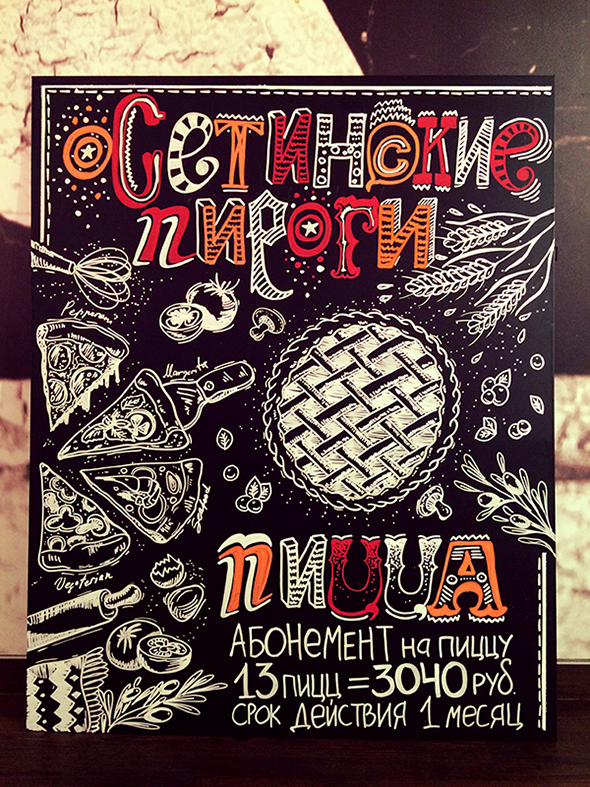 ОСЕТИНСКИЕ
ПИРОГИ
Pepperoni
Margarita
Vegeterian
ПИЦЦА
АБОНЕМЕНТ на пиццу
13 пицц = 3040 руб.
срок действия 1 месяц